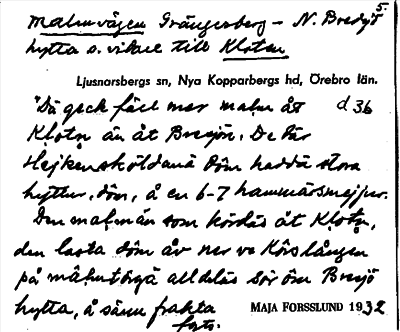 5.
Malmvägen Grängesberg – N. Bredsjö
hytta o. vidare till Kloten
Ljusnarsbergs sn, Nya Kopparbergs hd, Örebro län.
"Dä geck fäll mer malm åt d 36
Klotn än åt Bresjön. De där
Hejkenskôldana dôm hadda stora
hyttur, dôm, å en 6–7 hammarsmejjur.
Den malmän som kördäs åt Klotn,
den lasta dôm åv ner ve Körslången
på malmtôrgä alldeläs sör öm Bresjö
hytta, å sänn frakta
forts.
MAJA FORSSLUND 1932